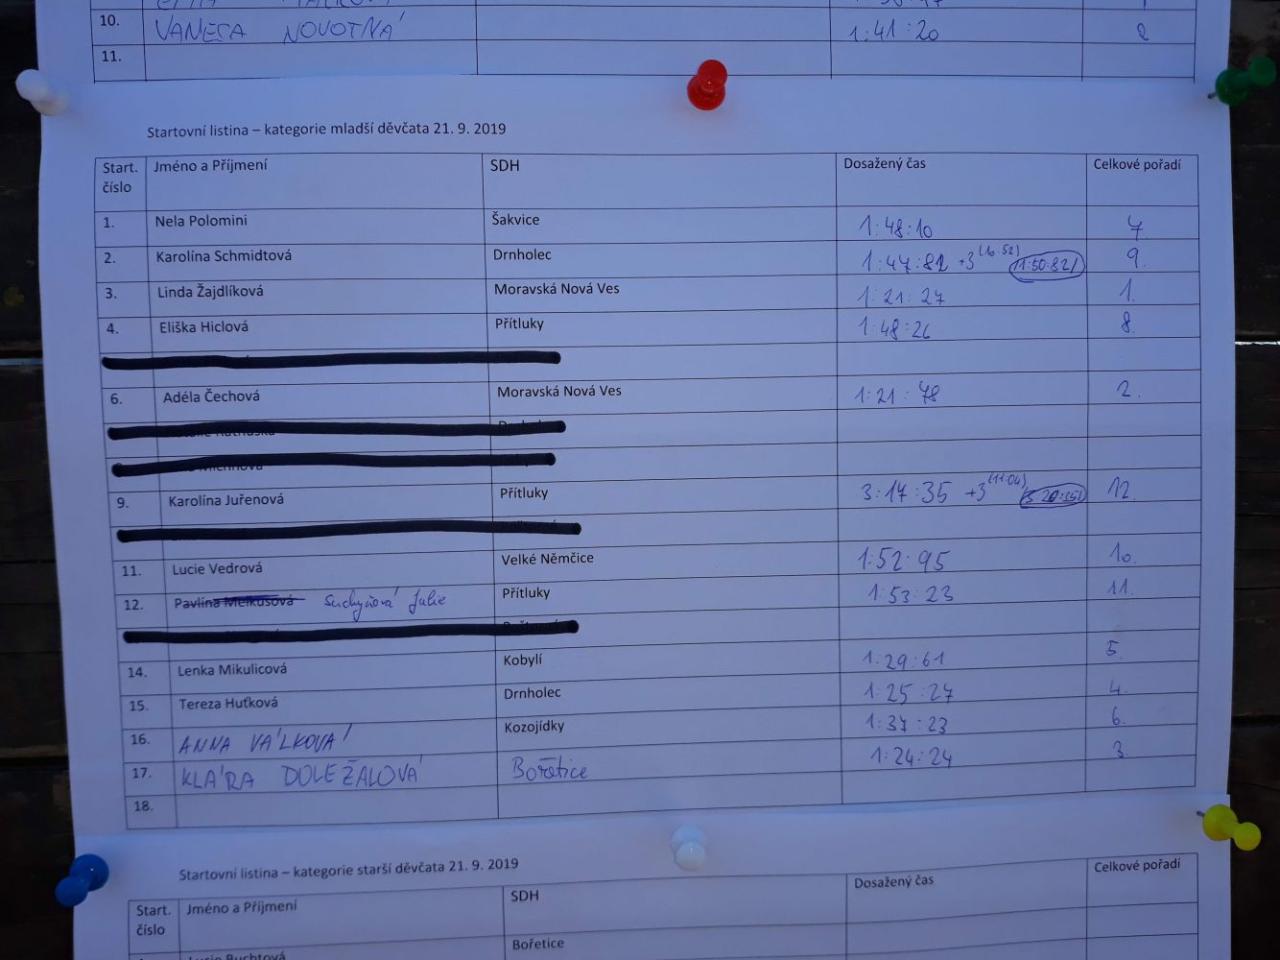 10. VANESA NOVOTNÁ 1:41:20 2
11.
Startovní listina – kategorie mladší děvčata 21. 9. 2019
Start. číslo Jméno a Příjmení SDH Dosažený čas Celkové pořadí
1. Nela Polomini Šakvice 1:48:10 7.
2. Karolína Schmidtová Drnholec 1:47:82 +3 (16:52) (1:50:82) 9.
3. Linda Žajdlíková Moravská Nová Ves 1:21:27 1.
4. Eliška Hiclová Přítluky 1:48:26 8.
6. Adéla Čechová Moravská Nová Ves 1:21:78 2.
9. Karolína Juřenová Přítluky 3:17:35 +3 (11:04) (3:20:35) 12.
11. Lucie Vedrová Velké Němčice 1:52:95 10.
12. Pavlína Melkusová Suchyňová Julie Přítluky 1:53:23 11.
14. Lenka Mikulicová Kobylí 1:29:61 5.
15. Tereza Huťková Drnholec 1:25:27 4.
16. ANNA VÁLKOVÁ Kozojídky 1:37:23 6.
17. KLÁRA DOLEŽALOVÁ Bořetice 1:24:24 3.
18.
Startovní listina – kategorie starší děvčata 21. 9. 2019
Start. číslo Jméno a Příjmení SDH Dosažený čas Celkové pořadí
Bořetice